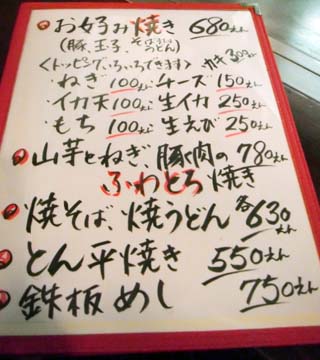 お好み焼き 680えん
(豚、玉子、そば、うどん)
〈トッピングいろいろできます〉 カキ300えん
ねぎ 100えん チーズ 150えん
イカ天 100えん 生イカ 250えん
もち 100えん 生えび 250えん
山芋とねぎ、豚肉の 780えん
ふわとろ焼き
焼そば、焼うどん 各630えん
とん平焼き 550えん
鉄板めし 750えん